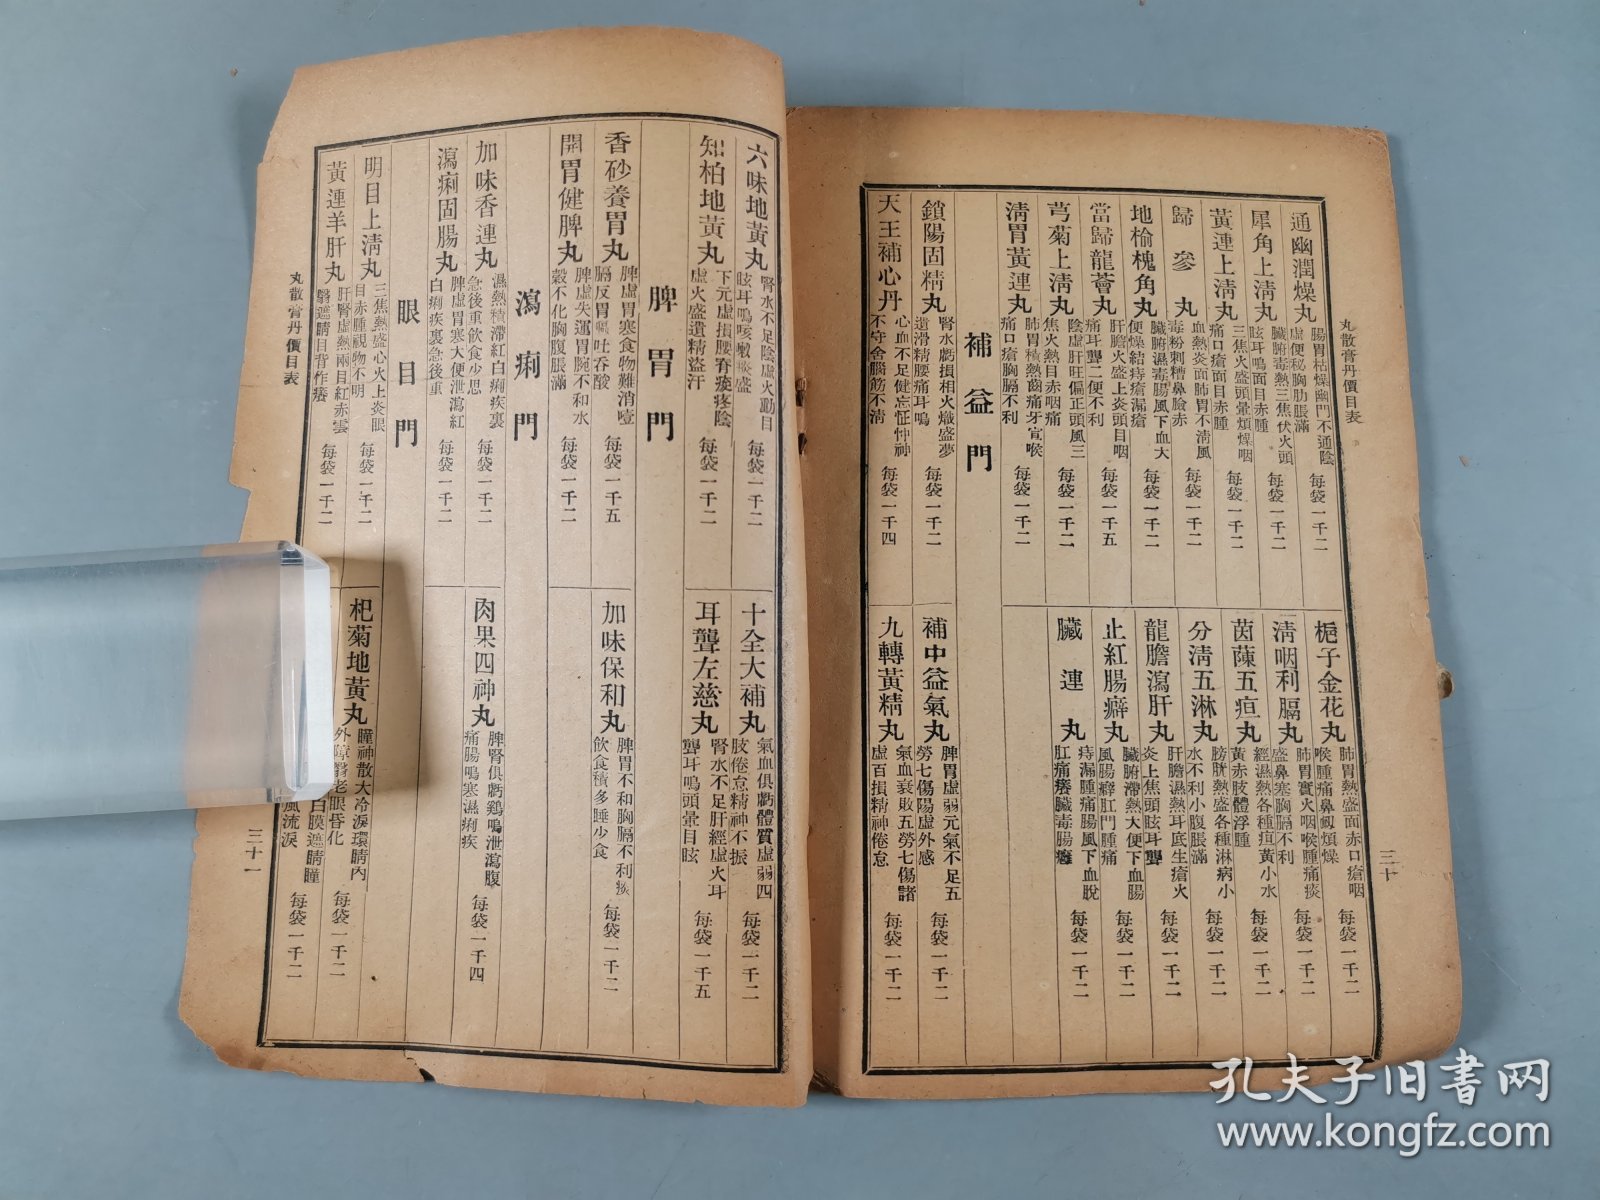 丸散膏丹價目表
三十
通幽潤燥丸 腸胃枯燥幽門不通陰虛便秘胸肋脹滿 每袋一千二
犀角上淸丸 臟腑毒熱三焦伏火頭眩耳鳴面目赤腫 每袋一千二
黃連上淸丸 三焦火盛頭暈煩燥咽痛口瘡面目赤腫 每袋一千二
歸參丸 血熱炎面肺胃不淸風毒粉刺糟鼻臉赤 每袋一千二
地榆槐角丸 臟腑濕毒腸風下血大便燥結痔瘡漏瘡 每袋一千二
當歸龍薈丸 肝膽火盛上炎頭目咽痛耳聾二便不利 每袋一千五
芎菊上淸丸 陰虛肝旺偏正頭風三焦火熱目赤咽痛 每袋一千二
淸胃黃連丸 肺胃積熱齒痛牙宣喉痛口瘡胸膈不利 每袋一千二
梔子金花丸 肺胃熱盛面赤口瘡咽喉腫痛鼻衂煩燥 每袋一千二
淸咽利膈丸 肺胃實火咽喉腫痛痰盛鼻塞胸膈不利 每袋一千二
茵蔯五疸丸 經濕熱各種疸黃小水黃赤肢體浮腫 每袋一千二
分淸五淋丸 膀胱熱盛各種淋病小水不利小腹脹滿 每袋一千二
龍膽瀉肝丸 肝膽濕熱耳底生瘡火炎上焦頭眩耳聾 每袋一千二
止紅腸癖丸 臟腑滯熱大便下血腸風腸癖肛門腫痛 每袋一千二
臟連丸 痔漏腫痛腸風下血脫肛痛癢臟毒腸癰 每袋一千二
補益門
鎖陽固精丸 腎水虧損相火熾盛夢遺滑精腰痛耳鳴 每袋一千二
天王補心丹 心血不足健忘怔忡神不守舍腦筋不淸 每袋一千四
補中益氣丸 脾胃虛弱元氣不足五勞七傷陽虛外感 每袋一千二
九轉黃精丸 氣血衰敗五勞七傷諸虛百損精神倦怠 每袋一千二
六味地黃丸 腎水不足陰虛火動目眩耳鳴咳嗽痰盛 每袋一千二
知柏地黃丸 下元虛損腰脊痠疼陰虛火盛遺精盜汗 每袋一千二
十全大補丸 氣血俱虧體質虛弱四肢倦怠精神不振 每袋一千二
耳聾左慈丸 腎水不足肝經虛火耳聾耳鳴頭暈目眩 每袋一千五
脾胃門
香砂養胃丸 脾虛胃寒食物難消噎膈反胃嘔吐吞酸 每袋一千五
開胃健脾丸 脾虛失運胃腕不和水穀不化胸腹脹滿 每袋一千二
加味保和丸 脾胃不和胸膈不利痰飲食積多睡少食 每袋一千二
瀉痢門
加味香連丸 濕熱積滯紅白痢疾裏急後重飲食少思 每袋一千二
瀉痢固腸丸 脾虛胃寒大便泄瀉紅白痢疾裏急後重 每袋一千二
肉果四神丸 脾腎俱虧鷄鳴泄瀉腹痛腸鳴寒濕痢疾 每袋一千四
眼目門
明目上淸丸 三焦熱盛心火上炎眼目赤腫視物不明 每袋一千二
黃連羊肝丸 肝腎虛熱兩目紅赤雲翳遮睛目背作癢 每袋一千二
杞菊地黃丸 瞳神散大冷淚環睛內外障翳老眼昏化 每袋一千二
白膜遮睛瞳
風流淚 每袋一千二
丸散膏丹價目表
三十一
孔夫子旧书网
www.kongfz.com